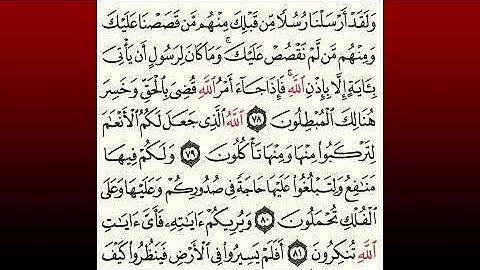 وَلَقَدْ أَرْسَلْنَا رُسُلًا مِّن قَبْلِكَ مِنْهُم مَّن قَصَصْنَا عَلَيْكَ
وَمِنْهُم مَّن لَّمْ نَقْصُصْ عَلَيْكَ ۗ وَمَا كَانَ لِرَسُولٍ أَن يَأْتِىَ
بِـَٔايَةٍ إِلَّا بِإِذْنِ ٱللَّهِ ۚ فَإِذَا جَآءَ أَمْرُ ٱللَّهِ قُضِىَ بِٱلْحَقِّ وَخَسِرَ
هُنَالِكَ ٱلْمُبْطِلُونَ ٧٨ ٱللَّهُ ٱلَّذِى جَعَلَ لَكُمُ ٱلْأَنْعَـٰمَ
لِتَرْكَبُوا۟ مِنْهَا وَمِنْهَا تَأْكُلُونَ ٧٩ وَلَكُمْ فِيهَا
مَنَـٰفِعُ وَلِتَبْلُغُوا۟ عَلَيْهَا حَاجَةً فِى صُدُورِكُمْ وَعَلَيْهَا وَعَلَى
ٱلْفُلْكِ تُحْمَلُونَ ٨٠ وَيُرِيكُمْ ءَايَـٰتِهِۦ فَأَىَّ ءَايَـٰتِ
ٱللَّهِ تُنكِرُونَ ٨١ أَفَلَمْ يَسِيرُوا۟ فِى ٱلْأَرْضِ فَيَنظُرُوا۟ كَيْفَ